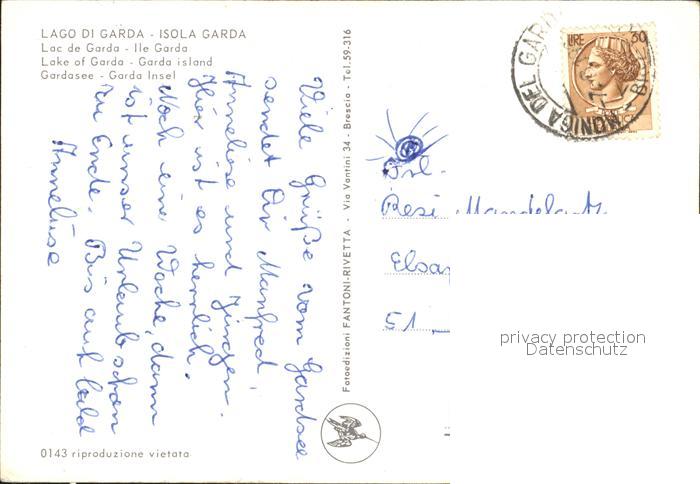 LAGO DI GARDA - ISOLA GARDA
Lac de Garda - Ile Garda
Lake of Garda - Garda island
Gardasee - Garda Insel
Viele Grüße vom Gardsee
sendet Dir Manfred,
Anneliese und Jürgen.
Hier ist es herrlich.
Noch eine Woche, dann
ist unser Urlaub schon
zu Ende. Bis auf bald
Anneliese
0143 riproduzione vietata
Fotoedizioni FANTONI-RIVETTA - Via Vantini 34 - Brescia - Tel. 59-316
MONIGA DEL GARDA
LIRE 30
Frl.
Resi
Elsa
51
privacy protection
Datenschutz